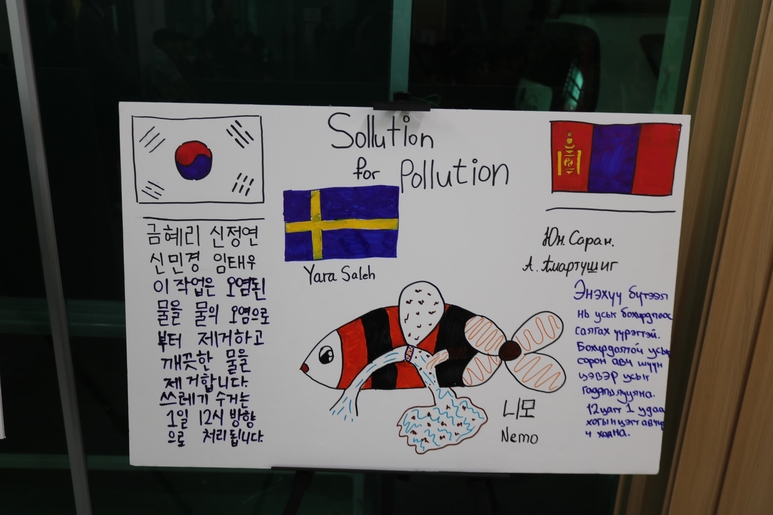 Sollution
for Pollution
금혜리 신정연
신민경 임태우
이 작업은 오염된
물을 물의 오염으로
부터 제거하고
깨끗한 물을
제거합니다
쓰레기 수거는
1일 12시 방향
으로 처리됩니다
Yara Saleh
니모
Nemo
Юн Саран.
А.
Энэхүү бүтээл
нь усыг бохирдлоос
салгах үүрэгтэй.
Бохирдолтой усыг
сорон авч шүүн
цэвэр усыг
12цагт 1 удаа